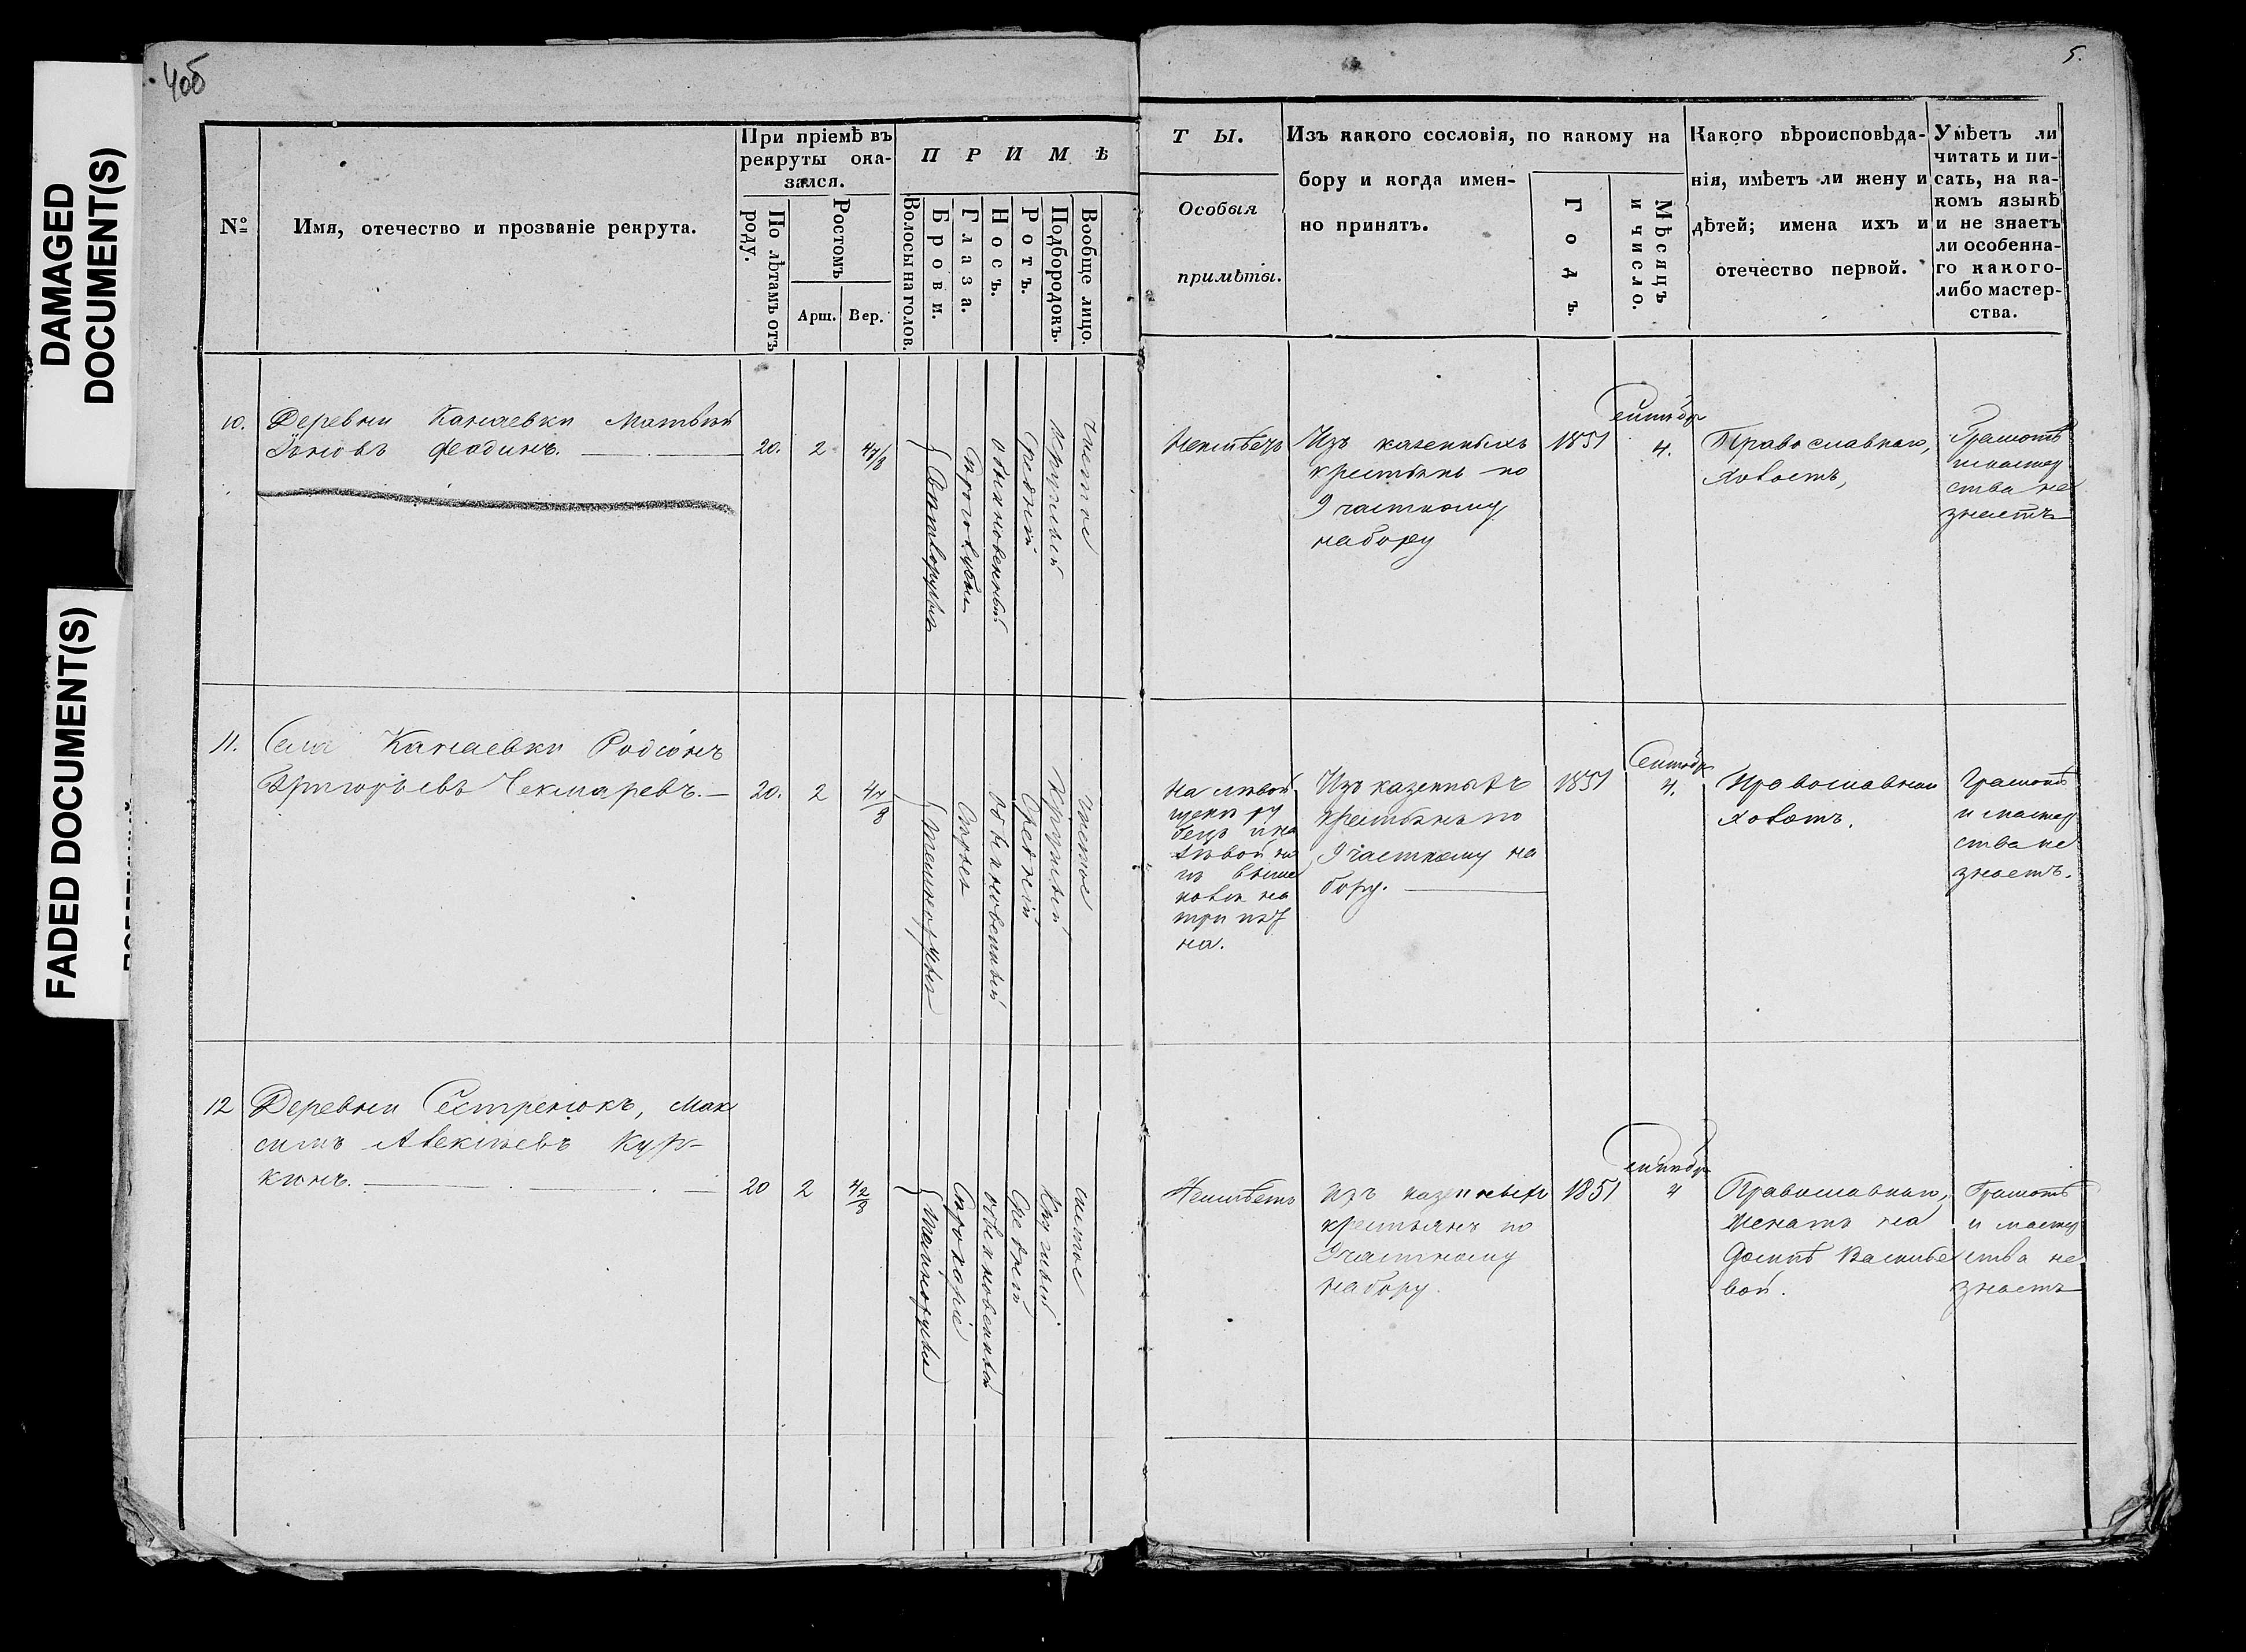 DAMAGED
DOCUMENT(S)
FADED DOCUMENT(S)
4об
5.
№
Имя, отечество и прозваніе рекрута.
При пріемѣ въ
рекруты ока-
зался.
По лѣтамъ отъ
роду.
Ростомъ
Арш.
Вер.
П Р И М Ѣ
Волосы на голов.
Брови.
Глаза.
Носъ.
Ротъ.
Подбородокъ.
Вообще лицо.
Т Ы.
Особыя
примѣты.
Изъ какого сословія, по какому на
бору и когда имен-
но принятъ.
Годъ.
Мѣсяцъ
и число.
Какого вѣроисповѣда-
нія, имѣетъ ли жену и
дѣтей; имена ихъ и
отечество первой.
Умѣетъ ли
читать и пи-
сать, на ка-
комъ языкѣ
и не знаетъ
ли особенна-
го какого-
либо мастер-
ства.
10.
Деревни Канаевки Матвѣй
Іоновъ Фединъ.
20.
2
4 7/8
Свѣтлорусые
обыкновенный
Средній
Круглый
чистое
Неимѣетъ
Изъ казенныхъ
крестьянъ по
9 частному
набору
1851
Сентября
4.
Православнаго,
холостъ,
Грамотѣ
и мастер
ства не
знаетъ
11.
Села Канаевки Родіонъ
Григорьевъ Чекмаревъ.
20.
2
4 7/8
Темнорусые
Сѣрые
Обыкновенный
Средній
Круглый
чистое
На лѣвой
щекѣ ру
бецъ и на
лѣвой но
гѣ
на
три пят
на.
Изъ казенныхъ
крестьянъ по
9 частному на
бору.
1851
Сентября
4.
Православнаго
холостъ.
Грамотѣ
и мастер
ства не
знаетъ.
12
Деревни Сестренокъ, Мак
симъ Алексѣевъ Кур-
кинъ.
20
2
4 2/8
Темнорусые
Сѣрокаріе
обыкновенный
Средній
Круглый
чистое
Неимѣетъ
Изъ казенныхъ
крестьянъ по
9 частному
набору.
1851
Сентября
4
Православнаго,
женатъ на
Васильѣ
вой.
Грамотѣ
и мастер
ства не
знаетъ